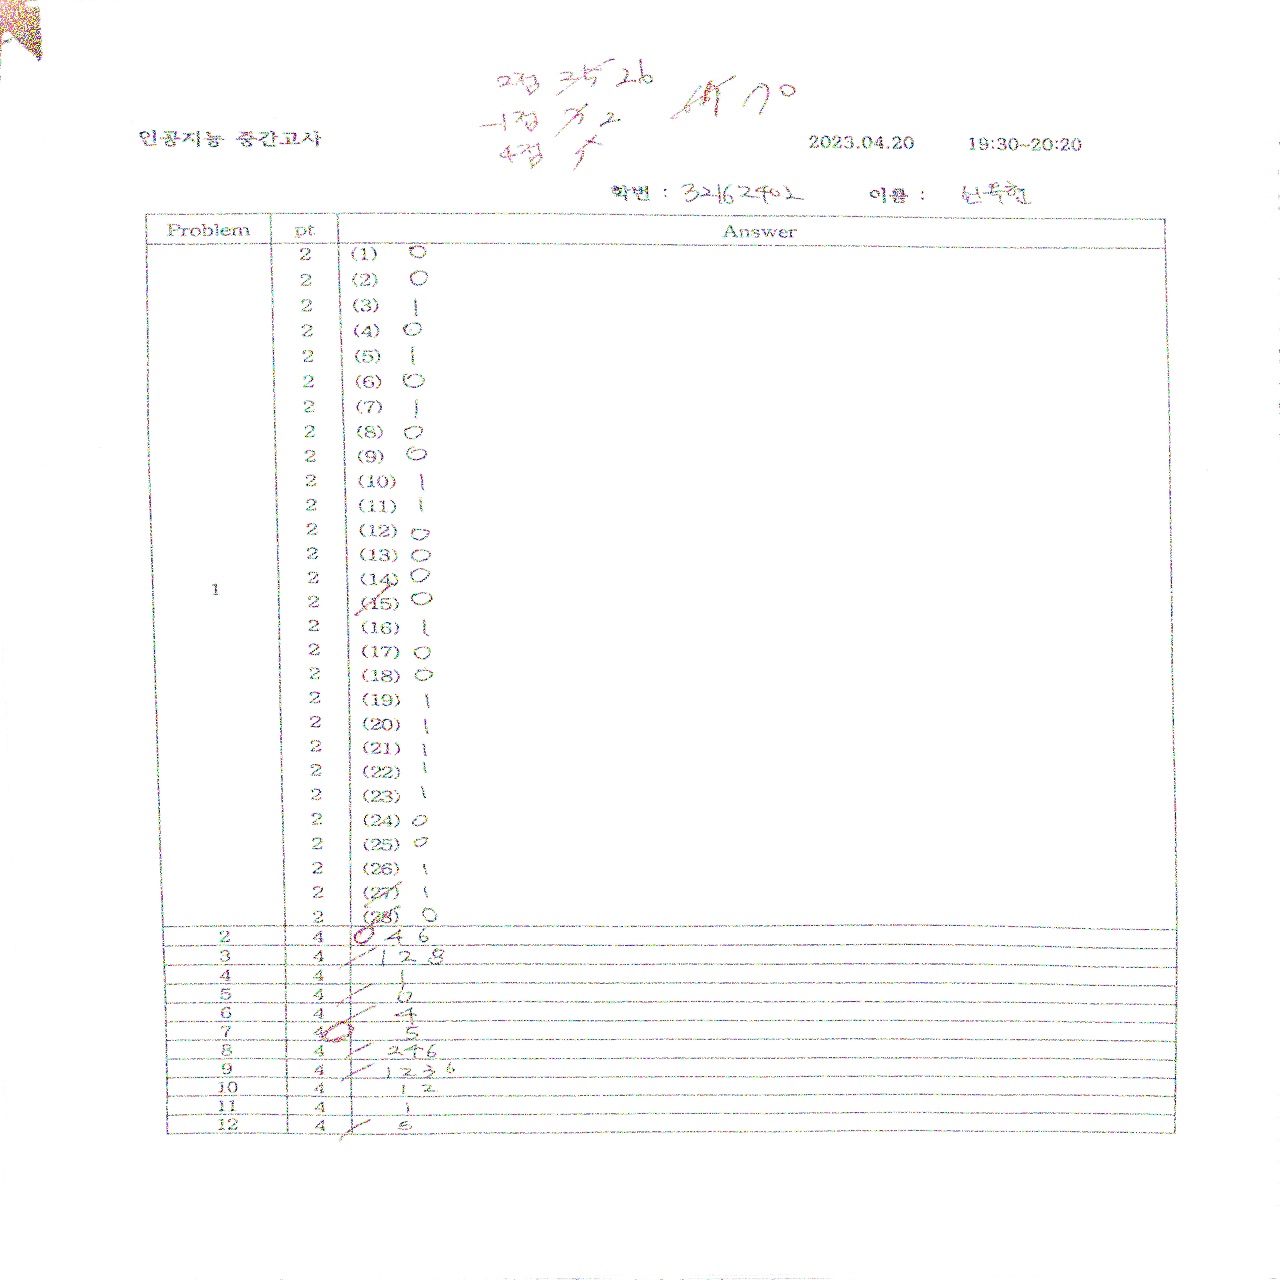 2점 26
70
-1점 2
4점
인공지능 중간고사 2023.04.20 19:30~20:20
학번 : 32162402 이름 :
Problem pt Answer
1
2 (1) 0
2 (2) 0
2 (3) 1
2 (4) 0
2 (5) 1
2 (6) 0
2 (7) 1
2 (8) 0
2 (9) 0
2 (10) 1
2 (11) 1
2 (12) 0
2 (13) 0
2 (14) 0
2 (15) 0
2 (16) 1
2 (17) 0
2 (18) 0
2 (19) 1
2 (20) 1
2 (21) 1
2 (22) 1
2 (23) 1
2 (24) 0
2 (25) 0
2 (26) 1
2 (27) 1
2 (28) 0
2 4 4 6
3 4 1 2 8
4 4 1
5 4 6
6 4 4
7 4 5
8 4 2 4 6
9 4 1 2 3 6
10 4 1 2
11 4 1
12 4